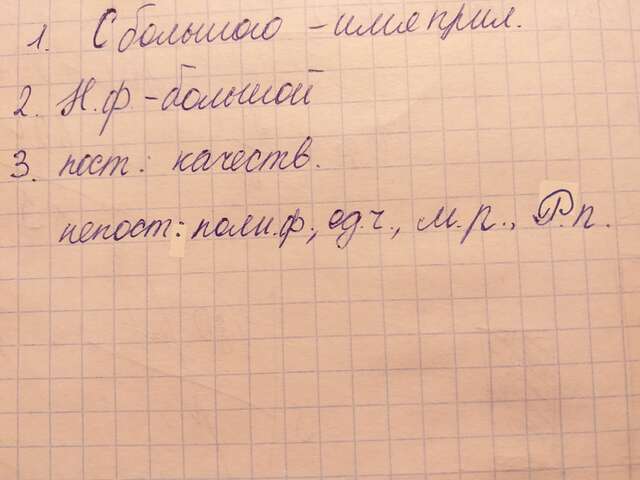 1. С большого - имя прил.
2. Н.ф - большой
3. пост: качеств.
непост: полн.ф, ед.ч, м.р., Р.п.